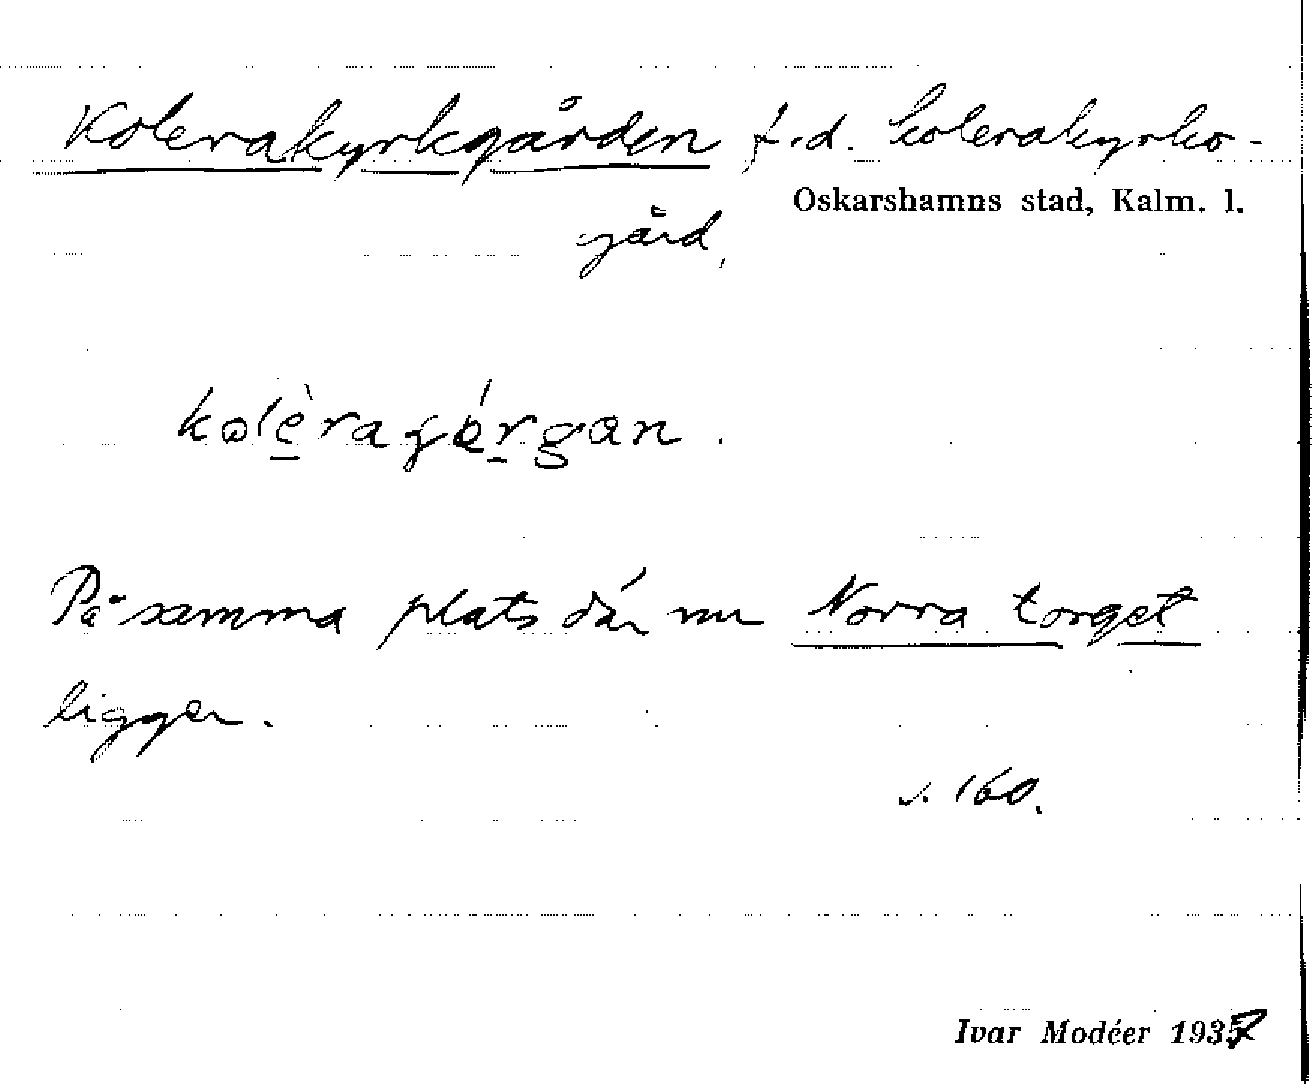 Kolerakyrkgården f.d. kolerakyrko-
Oskarshamns stad, Kalm. l.
gård,
På samma plats där nu Norra torget
ligger.
s. 160.
Ivar Modéer 1937